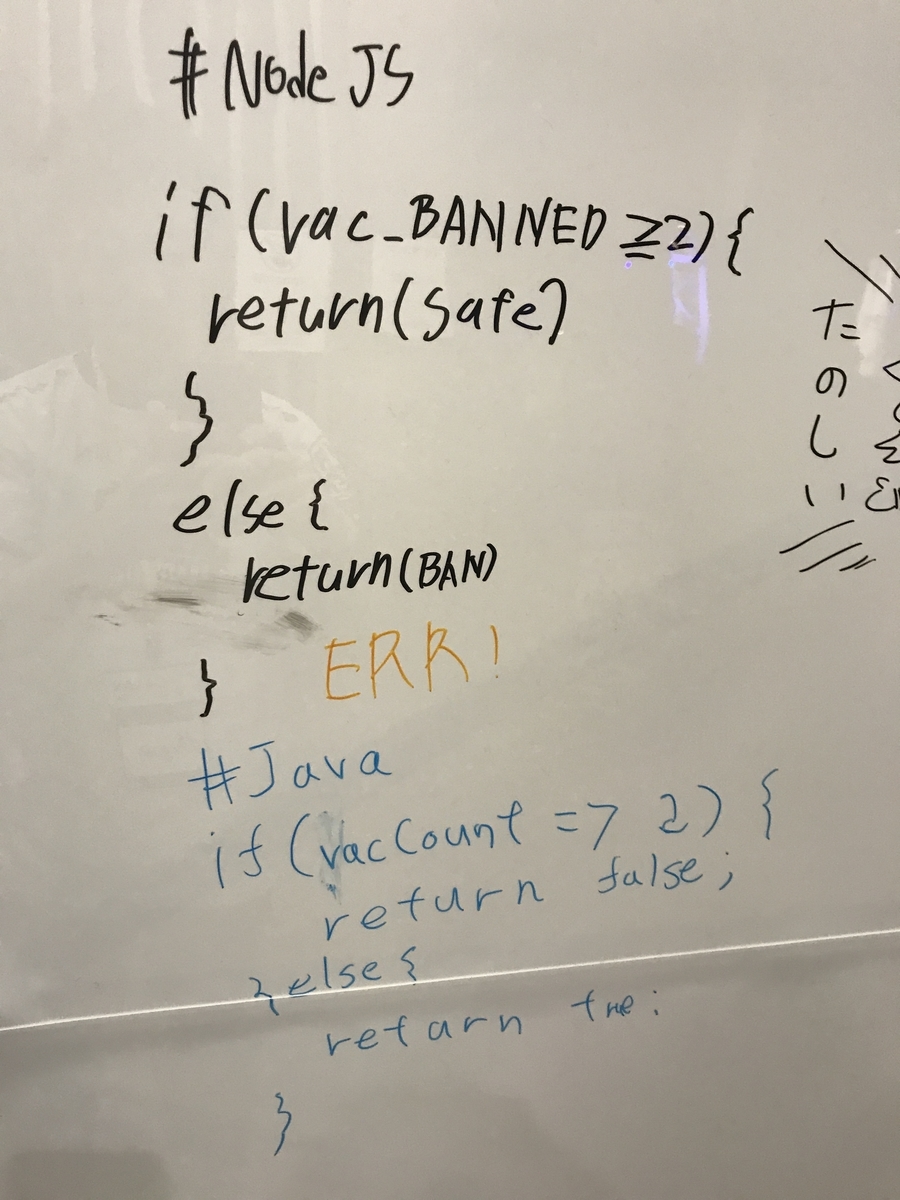 #Node JS
if(vac_BANNED ≧2){
return(safe)
}
else{
return(BAN)
}
ERR!
#Java
if(vacCount => 2) {
return false;
}else{
retarn true:
}
たのしい